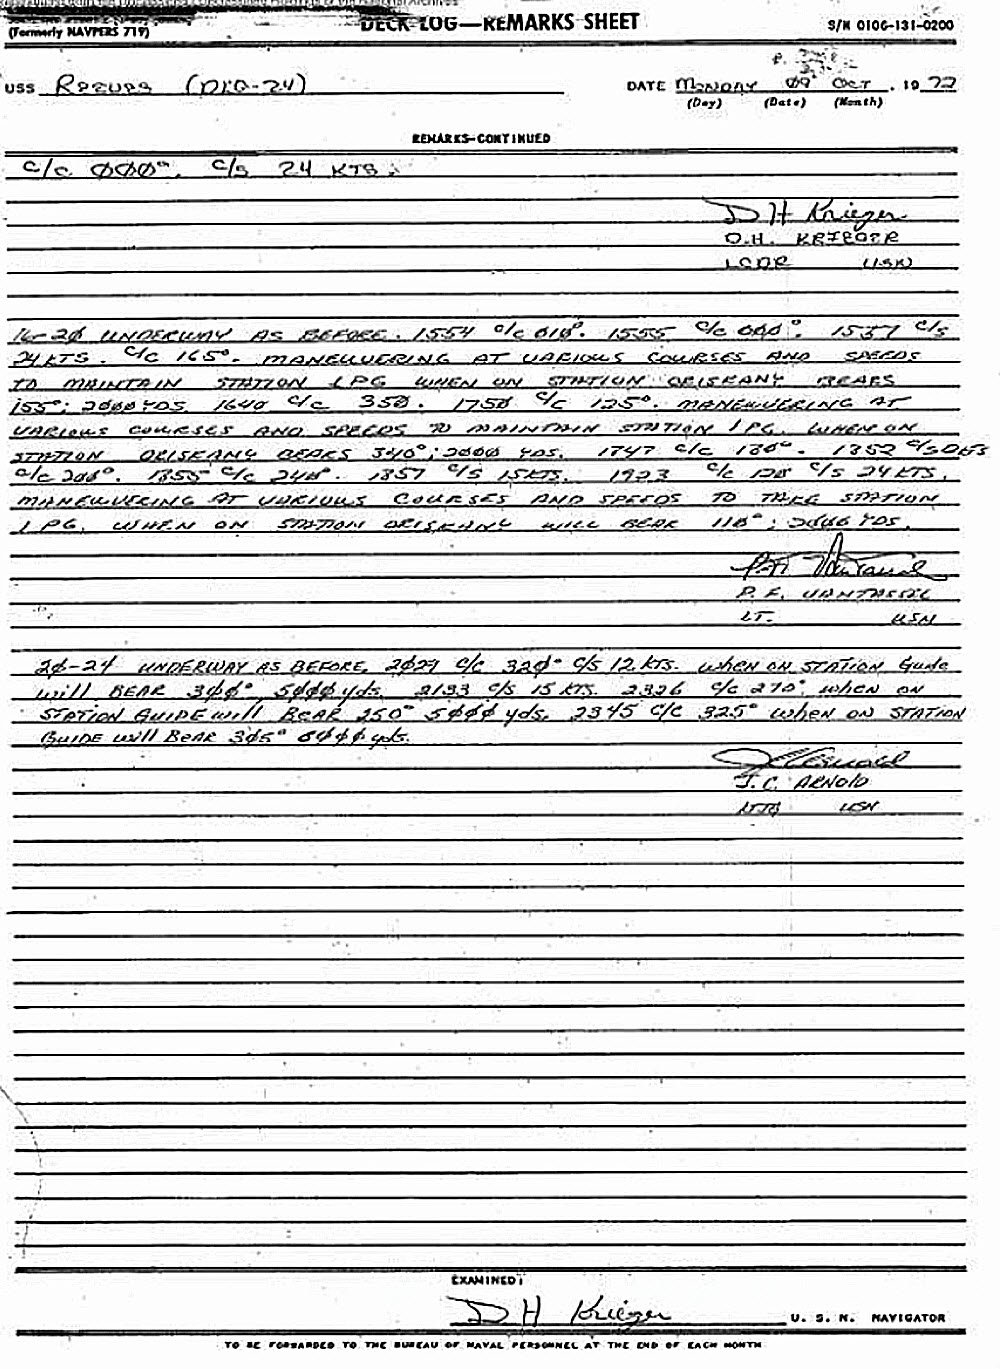 DECK LOG—REMARKS SHEET
(Formerly NAVPERS 719)
S/N 0106-131-0200
USS REEVES (DLG-24)
DATE MONDAY 09 OCT , 19 72
(Day) (Date) (Month)
REMARKS—CONTINUED
C/C 000°. C/S 24 KTS.
D H Krieger
D.H. KRIEGER
LCDR USN
16-20 UNDERWAY AS BEFORE. 1554 C/C 010°. 1555 C/C 000°. 1557 C/S
24 KTS. C/C 165°. MANEUVERING AT VARIOUS COURSES AND SPEEDS
TO MAINTAIN STATION 1PG WHEN ON STATION ORISKANY BEARS
155°; 2000 YDS. 1640 C/C 350. 1750 C/C 125°. MANEUVERING AT
VARIOUS COURSES AND SPEEDS TO MAINTAIN STATION 1PG. WHEN ON
STATION ORISKANY BEARS 340°; 2000 YDS. 1747 C/C 180°. 1852 C/S
C/C 200°. 1855 C/C 240°. 1857 C/S 15KTS. 1923 C/C 120 C/S 24 KTS.
MANEUVERING AT VARIOUS COURSES AND SPEEDS TO TAKE STATION
1PG. WHEN ON STATION ORISKANY WILL BEAR 110°; 2000 YDS.
P. F. VANTASSEL
LT. USN
20-24 UNDERWAY AS BEFORE. 2029 C/C 320° C/S 12 KTS. WHEN ON STATION Guide
will BEAR 300° 5000 yds. 2133 C/S 15 KTS. 2326 C/C 270° WHEN ON
STATION GUIDE will BEAR 250° 5000 yds. 2345 C/C 325° WHEN ON STATION
GUIDE will BEAR 305° yds.
J.C. Arnold
J.C. ARNOLD
LTJG USN
EXAMINED:
D H Krieger
U. S. N. NAVIGATOR
TO BE FORWARDED TO THE BUREAU OF NAVAL PERSONNEL AT THE END OF EACH MONTH